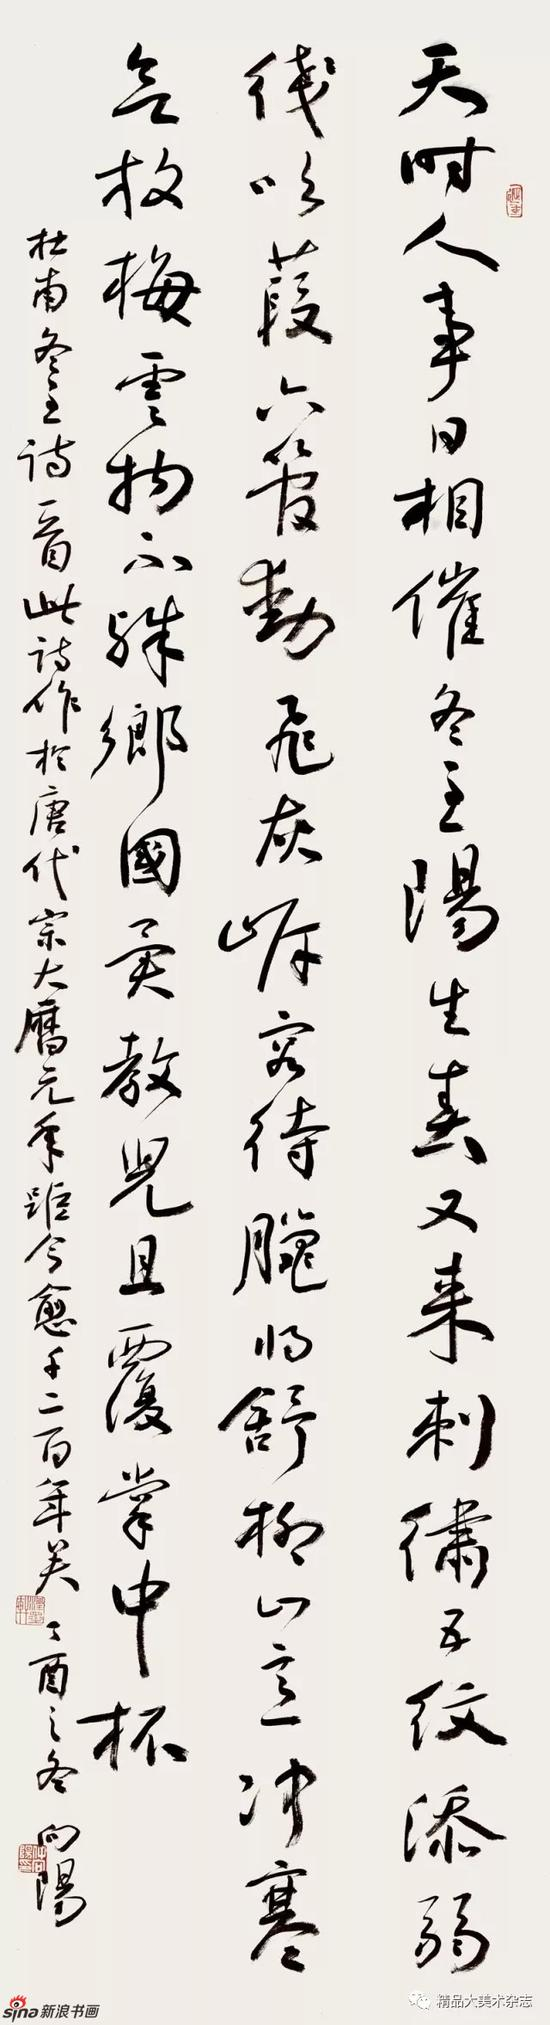 天时人事日相催冬至陽生春又来刺繡五纹添弱
綫吹葭六管動飛灰岸容待臘将舒柳山意冲寒
欲放梅雲物不殊鄉國異教兒且覆掌中杯
杜甫冬至诗一首此诗作於唐代宗大曆元年距今愈千二百年矣 丁酉之冬 向陽
sina新浪书画
精品大美术杂志